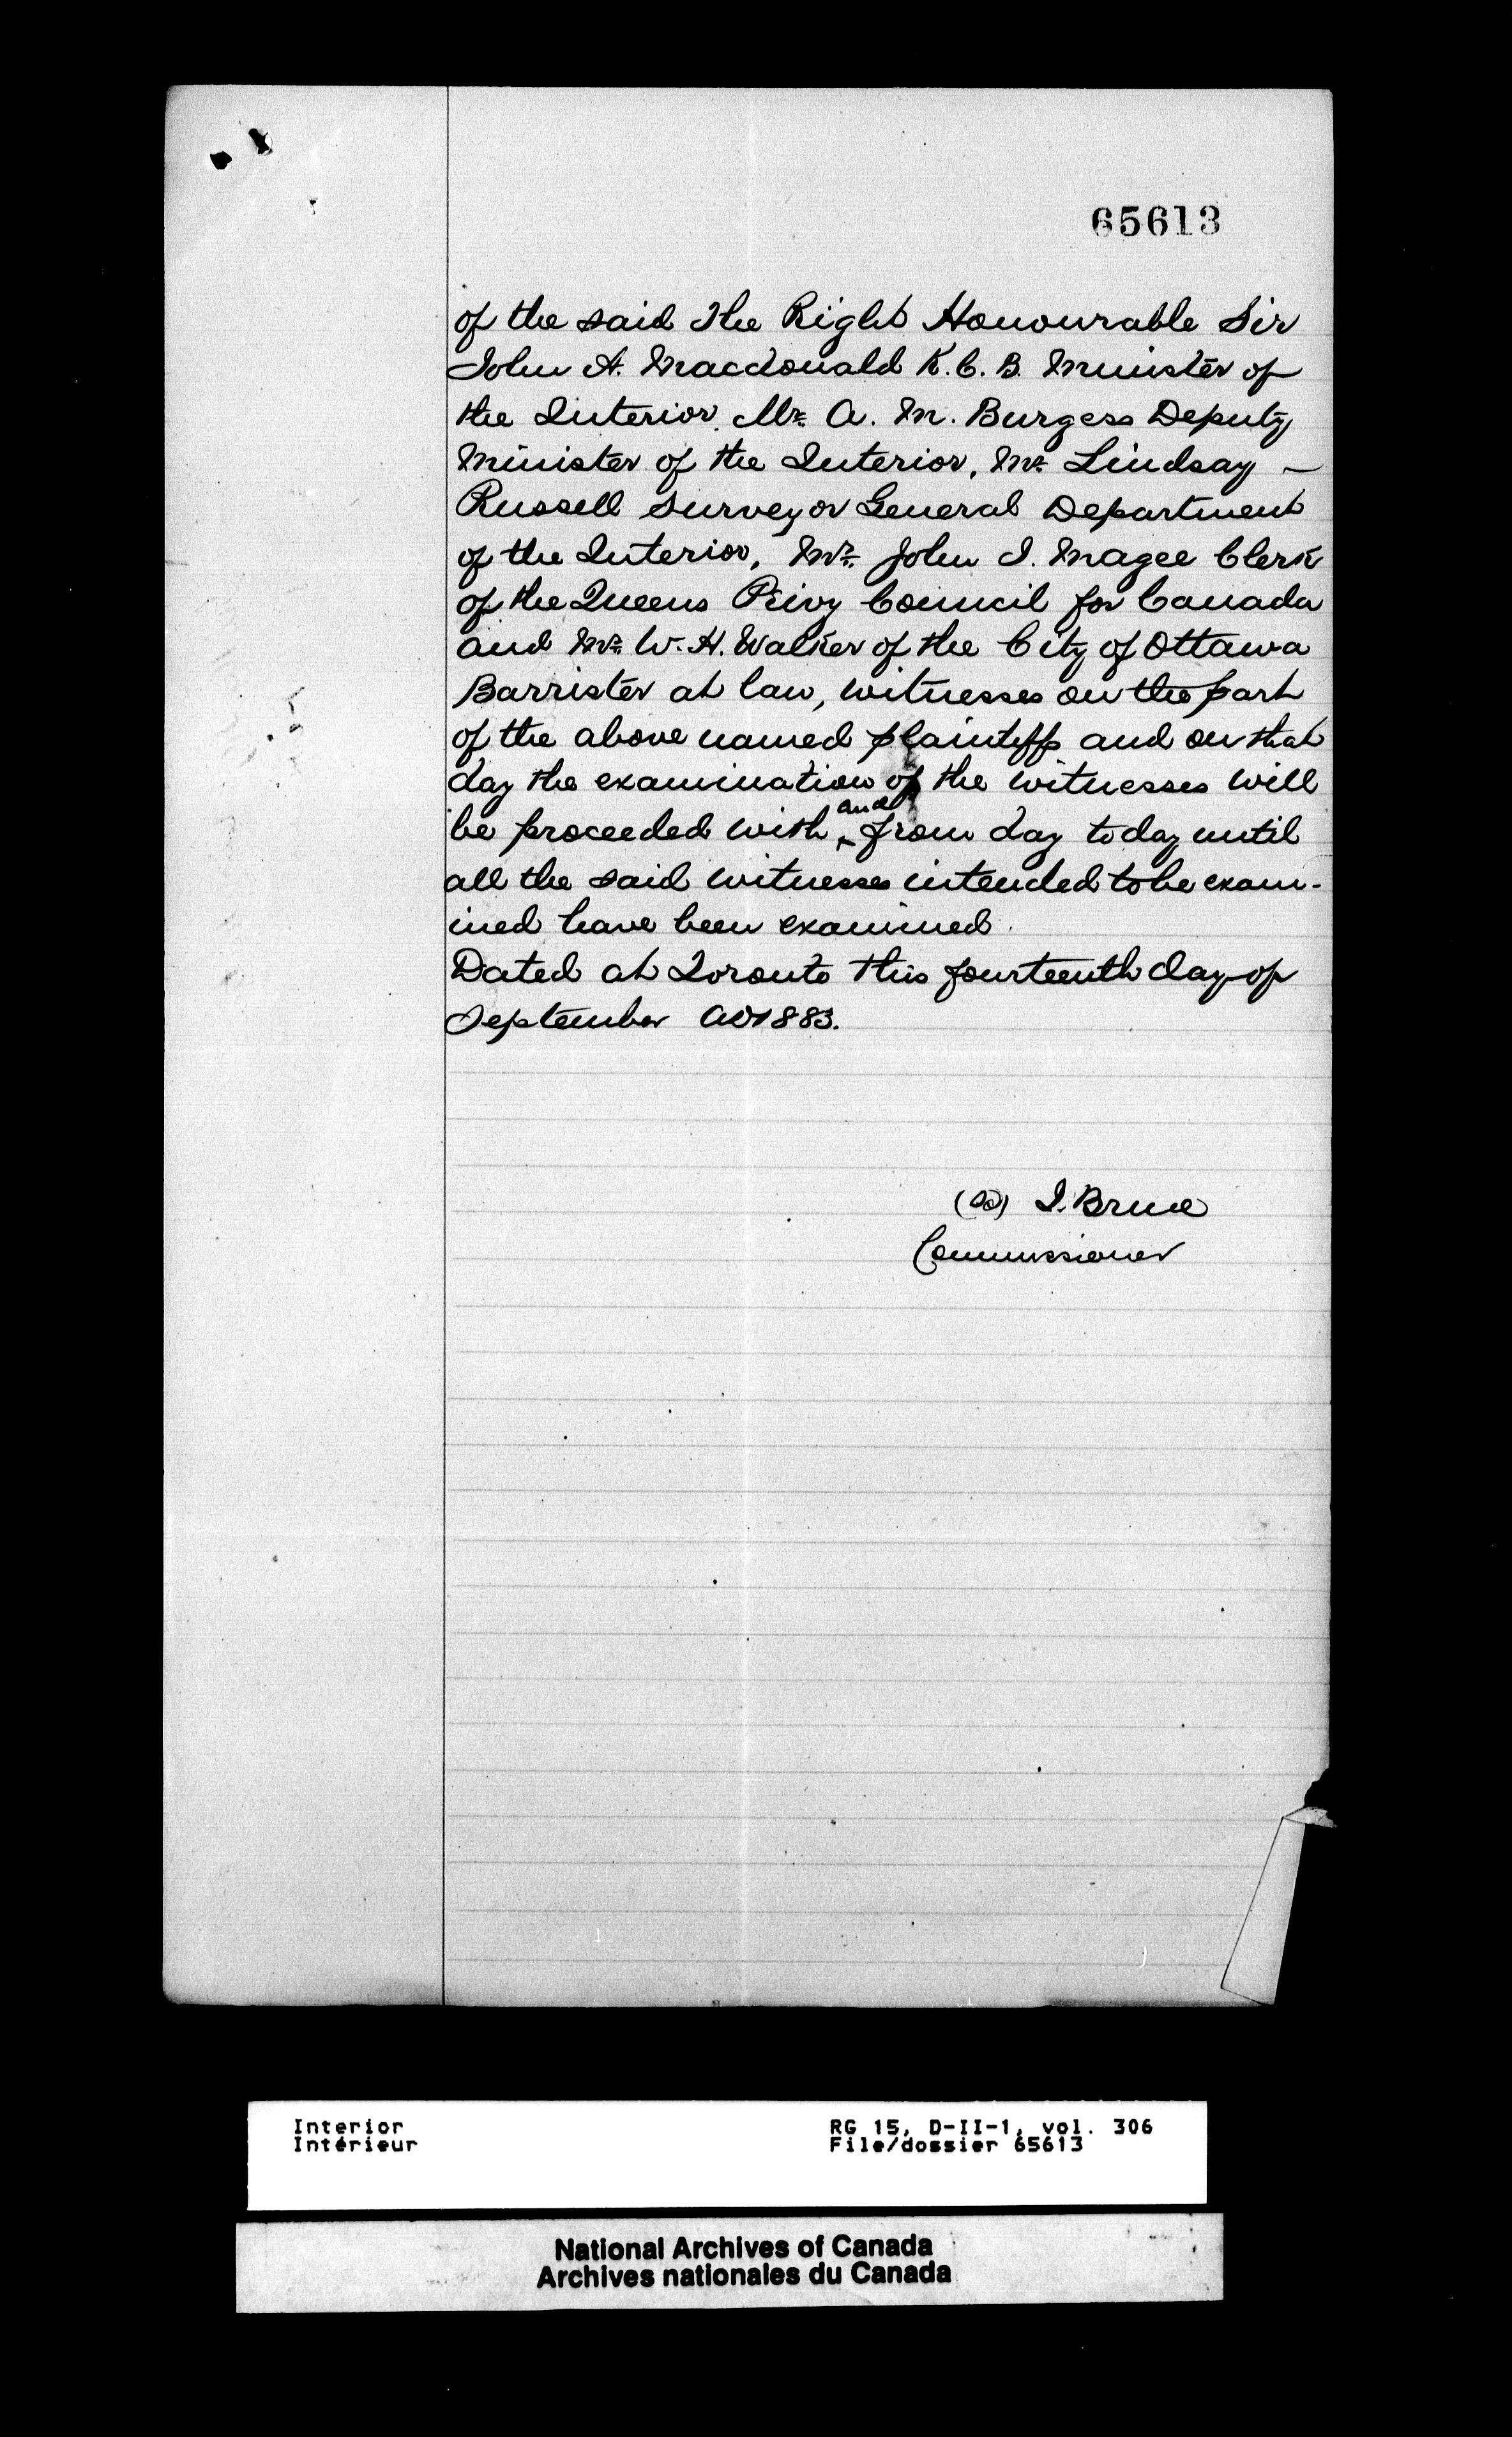 65613
of the said The Right Honourable Sir
John A. Macdonald K.C.B. Minister of
the Interior. Mr. A. M. Burgess Deputy
Minister of the Interior, Mr. Lindsay –
Russell Surveyor General Department
of the Interior, Mr. John J. Magee Clerk
of the Queens Privy Council for Canada
and Mr. W. H. Walker of the City of Ottawa
Barrister at law, witnesses on the part
of the above named plaintiff and on that
day the examination of the witnesses will
be proceeded with and from day to day until
all the said witnesses intended to be exam-
ined have been examined.
Dated at Toronto this fourteenth day of
September AD 1883.
(Sd) J. Bruce
Commissioner
Interior RG 15, D-II-1, vol. 306
Intérieur File/dossier 65613
National Archives of Canada
Archives nationales du Canada